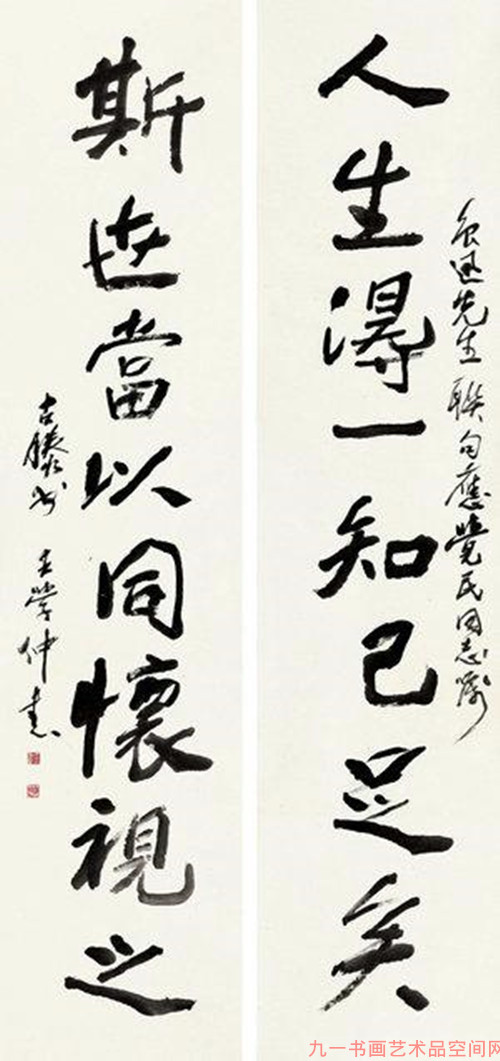 人生得一知己足矣
魯迅先生聯句應覺民同志囑
斯世當以同懷視之
古滕於 王學仲書
九一书画艺术品空间网